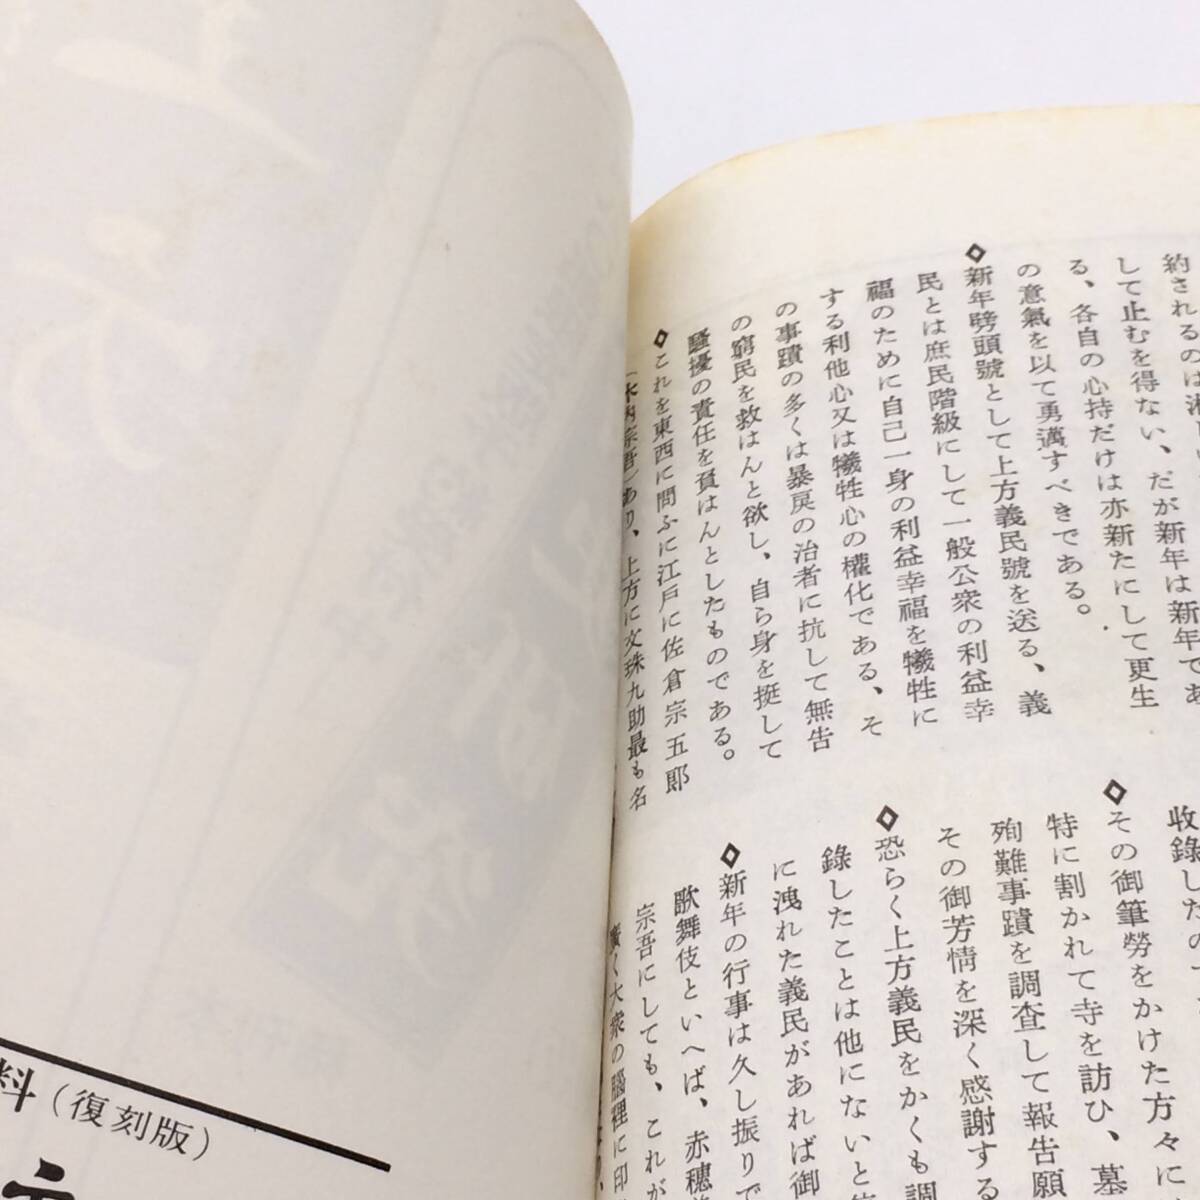 約されるのは淋
して止むを得ない、だが新年は新年であ
る、各自の心持だけは亦新たにして更生
の意氣を以て勇邁すべきである。
◇新年劈頭號として上方義民號を送る、義
民とは庶民階級にして一般公衆の利益幸
福のために自己一身の利益幸福を犧牲に
する利他心又は犧牲心の權化である、そ
の事蹟の多くは暴戾の治者に抗して無告
の窮民を救はんと欲し、自ら身を挺して
騷擾の責任を負はんとしたものである。
◇これを東西に問ふに江戸に佐倉宗五郎
(木內宗吾)あり、上方に文珠九助最も名
收錄したの
◇その御筆勞をかけた方々に
特に割かれて寺を訪ひ、墓
殉難事蹟を調査して報告願
その御芳情を深く感謝する
◇恐らく上方義民をかくも調
錄したことは他にないと
に洩れた義民があれば御
◇新年の行事は久し振りで
歌舞伎といへば、赤穗
宗吾にしても、これが
廣く大衆の腦裡に印
料(復刻版)